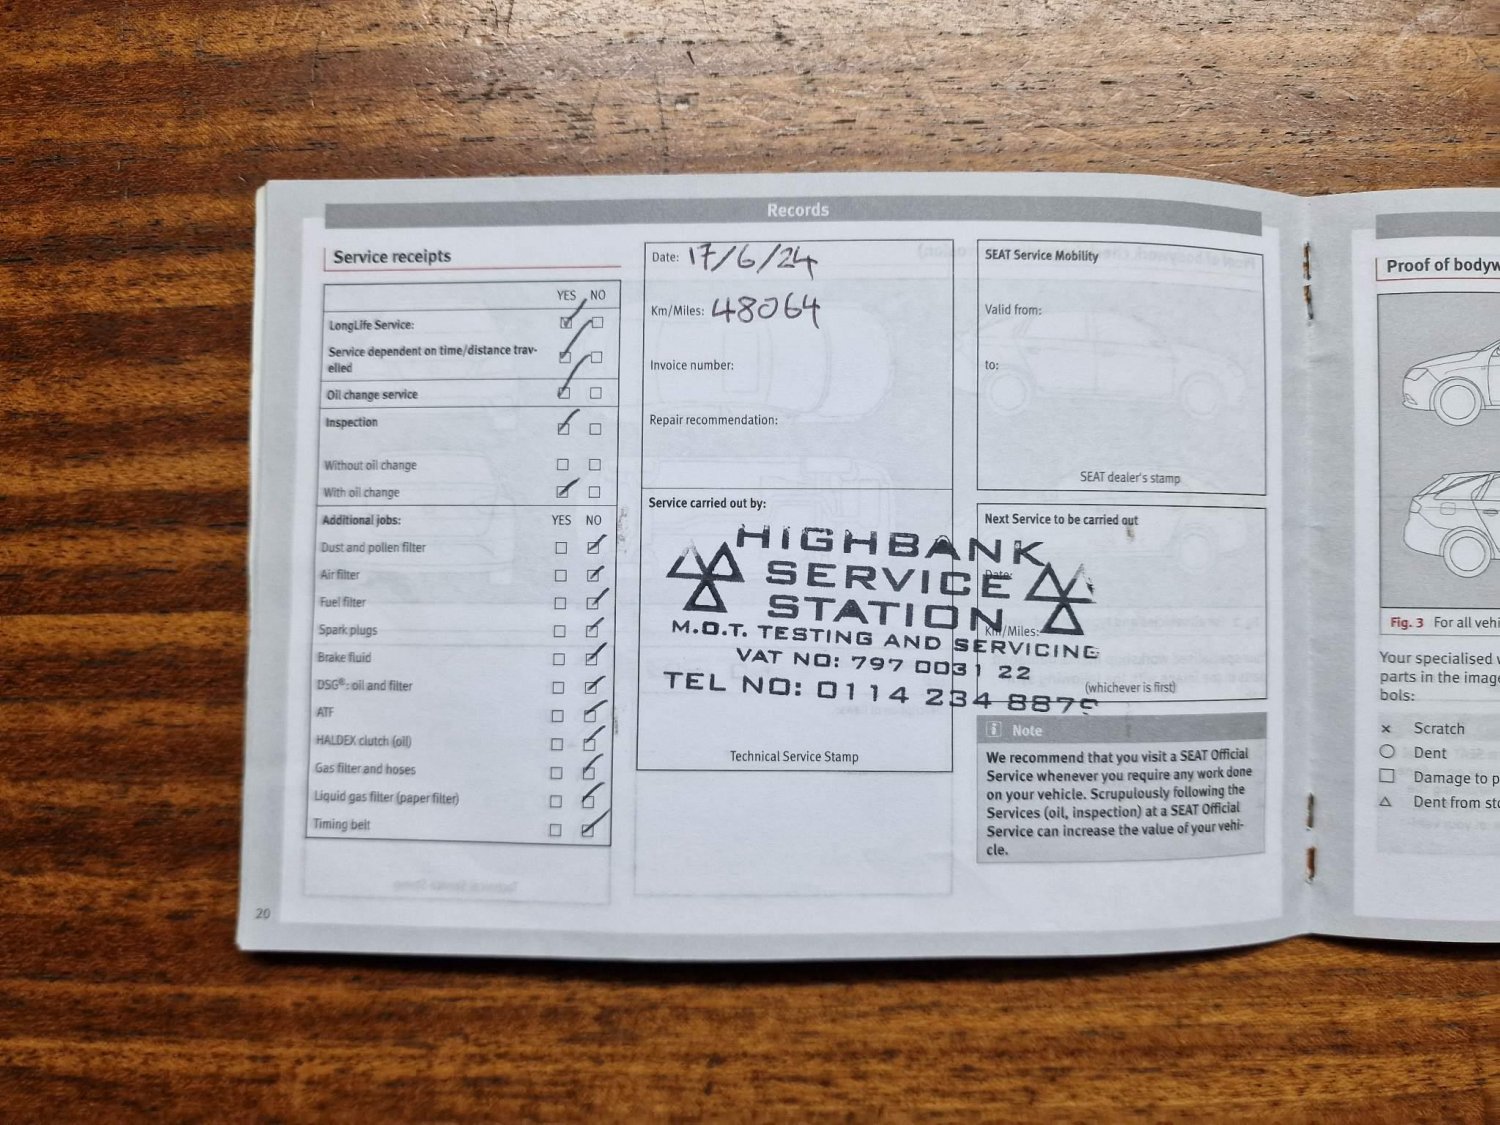 Records
Service receipts
YES NO
LongLife Service:
Service dependent on time/distance trav-
elled
Oil change service
Inspection
Without oil change
With oil change
Additional jobs: YES NO
Dust and pollen filter
Air filter
Fuel filter
Spark plugs
Brake fluid
DSG®: oil and filter
ATF
HALDEX clutch (oil)
Gas filter and hoses
Liquid gas filter (paper filter)
Timing belt
20
Date: 17/6/24
Km/Miles: 48064
Invoice number:
Repair recommendation:
Service carried out by:
HIGHBANK
SERVICE
STATION
M.O.T. TESTING AND SERVICING
VAT NO: 797 0031 22
TEL NO: 0114 234 8879
Technical Service Stamp
SEAT Service Mobility
Valid from:
to:
SEAT dealer's stamp
Next Service to be carried out
Date:
Km/Miles:
(whichever is first)
i Note
We recommend that you visit a SEAT Official
Service whenever you require any work done
on your vehicle. Scrupulously following the
Services (oil, inspection) at a SEAT Official
Service can increase the value of your vehi-
cle.
Proof of bodyw
Fig. 3 For all vehi
Your specialised
parts in the image
bols:
Scratch
Dent
Damage to p
Dent from sto